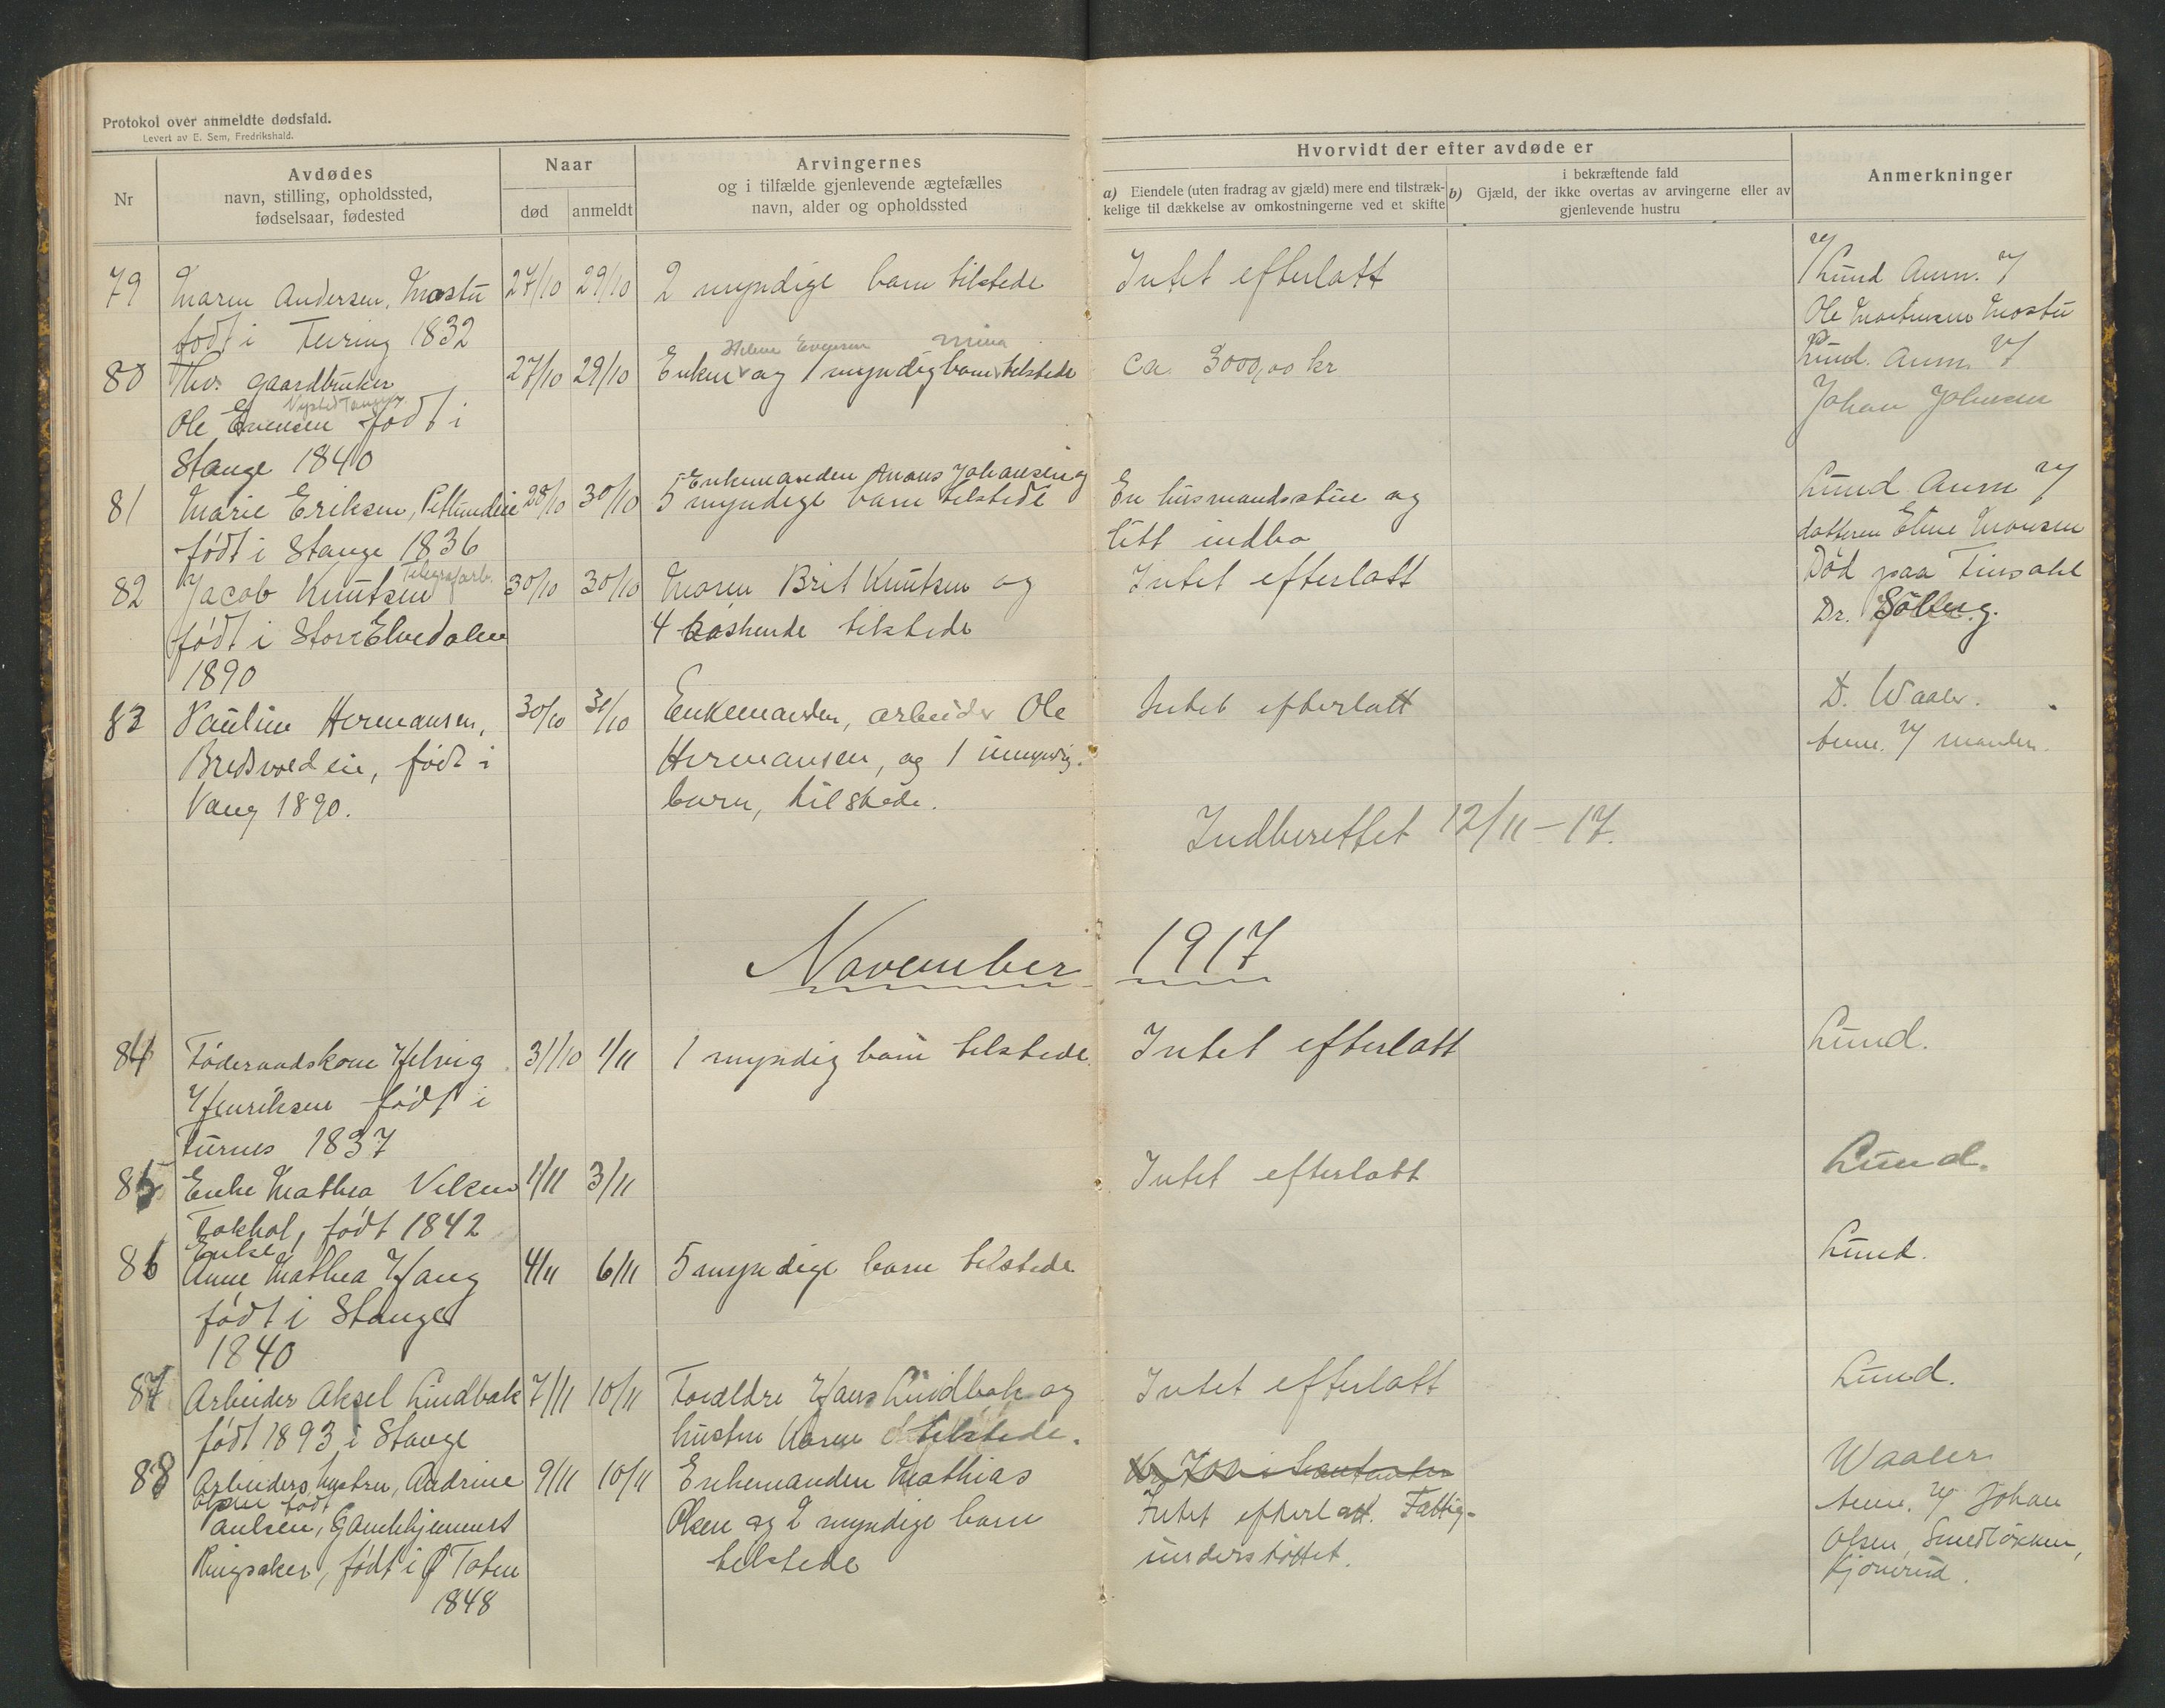 Protokol over anmeldte dødsfald.
Levert av E. Sem, Fredrikshald.
Nr
Avdødes
navn, stilling, opholdssted,
fødselsaar, fødested
Naar
død
anmeldt
Arvingernes
og i tilfælde gjenlevende ægtefælles
navn, alder og opholdssted
Hvorvidt der efter avdøde er
a) Eiendele (uten fradrag av gjæld) mere end tilstræk-
kelige til dækkelse av omkostningerne ved et skifte
i bekræftende fald
b) Gjæld, der ikke overtas av arvingerne eller av
gjenlevende hustru
Anmerkninger
79 Maren Andersen, Mostu 27/10 29/10 2 myndige barn tilstede Intet efterlatt Lund Anm. v/
født i 1832 Ole Mostu
80 Fhv. gaardbruker 27/10 29/10 Enken Helene Evensen og 1 myndig barn Mina tilstede ca. 3000,00 kr Lund. Anm. v/
Ole Evensen født i Johan Johnsen
Stange 1840
81 Marie Eriksen, 28/10 30/10 Enkemanden Johansen og
5 myndige barn tilstede En husmandsstue og Lund Anm v/
født i Stange 1836 litt indbo datteren Eline Monsen
82 Jacob Knutsen Telegrafarb. 30/10 30/10 Moren Brit Knutsen og Intet efterlatt Død paa
født i Stor Elvedalen 4 søskende tilstede Dr. Solberg.
1890
83 Pauline Hermansen, 30/10 31/10 Enkemanden, arbeider Ole Intet efterlatt D. Waaler.
Bredsvoldeie, født i Hermansen, og 1 umyndig Anm. v/ manden.
Vang 1890. barn, tilstede.
Indberettet 12/11-17.
November 1917
84 Føderaadskone Helvig 31/10 1/11 1 myndig barn tilstede Intet efterlatt Lund.
Henriksen født i
Furnes 1837
85 Enke Mathea 1/11 3/11 Intet efterlatt Lund.
født 1842
86 Enke
Anne Mathea Hang 4/11 6/11 5 myndige barn tilstede Lund.
født i Stange
1840
87 Arbeider Aksel Lindbak 7/11 10/11 Forældre Hans Lindbak og Intet efterlatt Lund.
født 1893 i Stange hustru Karen tilstede.
88 Arbeiders hustru, Andrine 9/11 10/11 Enkemanden Mathias Waaler
Olsen født
Paulsen, Olsen og 2 myndige barn Intet efterlatt. Fattig- Anm. v/ Johan
Ringsaker, født i Ø Toten tilstede understøttet. Olsen, Smedløkken,
1848 Kjonerud.